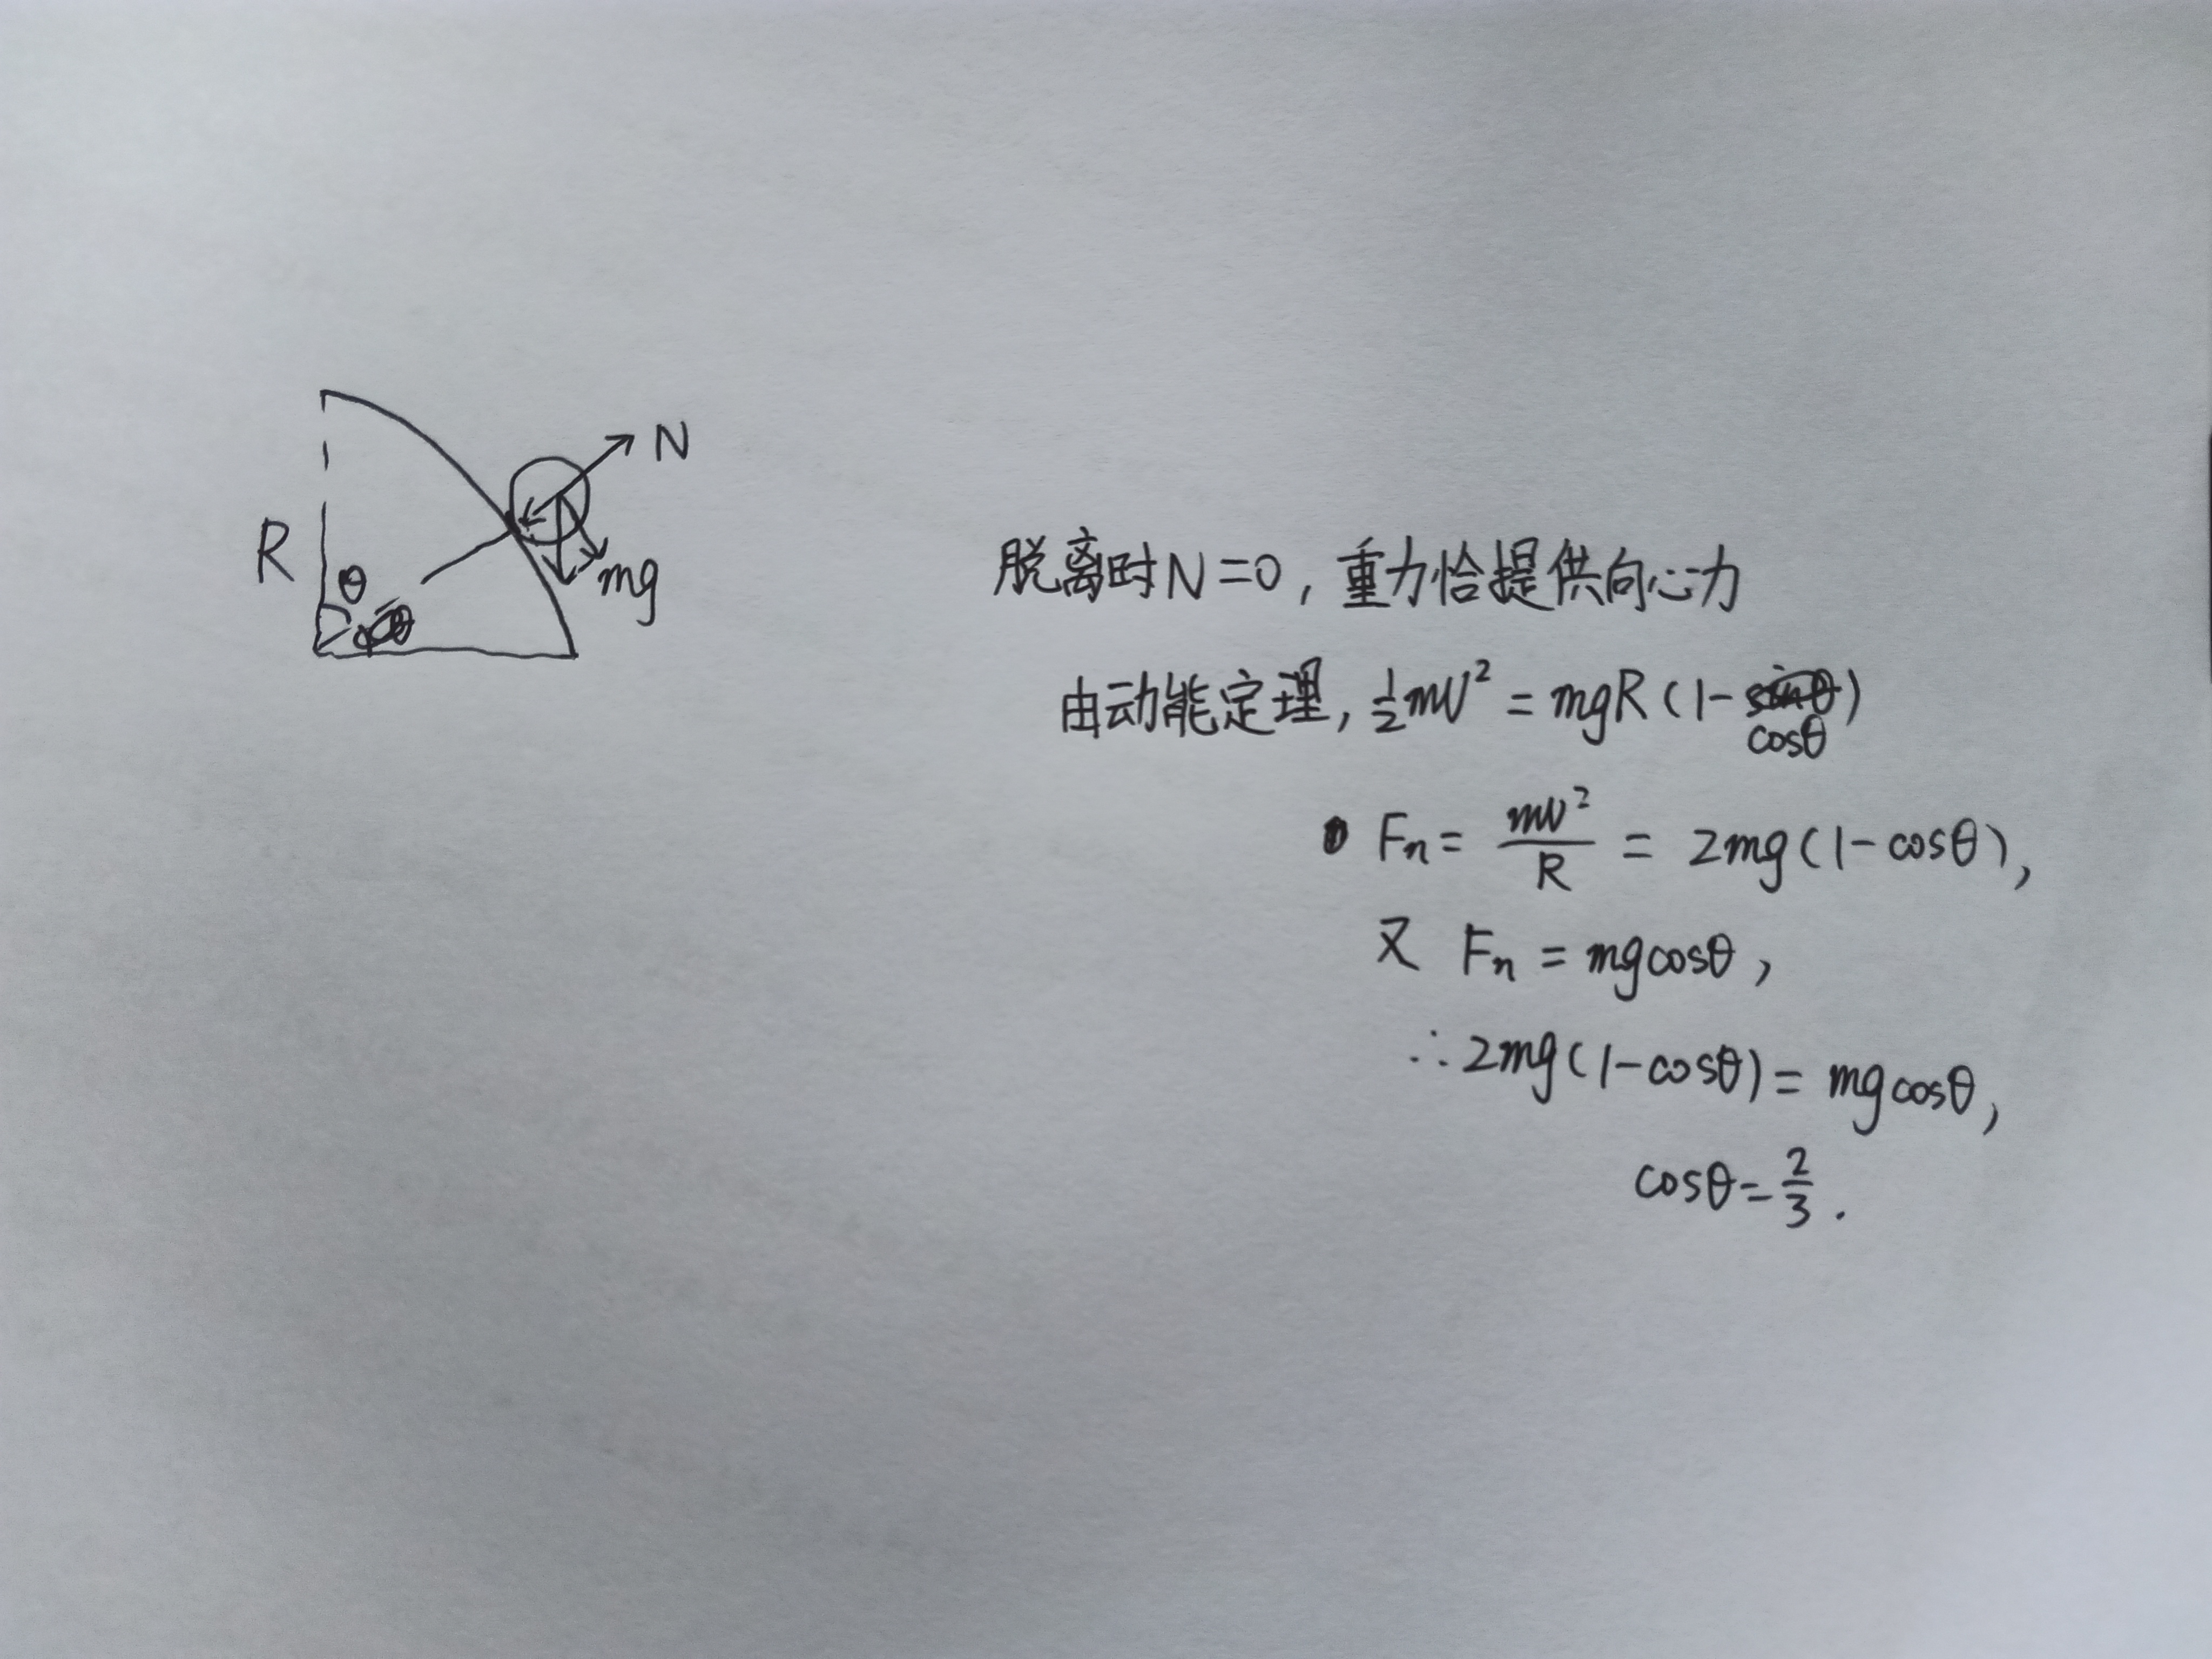 N
R
θ
mg
脱离时N=0,重力恰提供向心力
由动能定理,½mv²=mgR(1-cosθ)
Fn=mv²/R=2mg(1-cosθ),
又 Fn=mgcosθ,
∴2mg(1-cosθ)=mgcosθ,
cosθ=2/3.